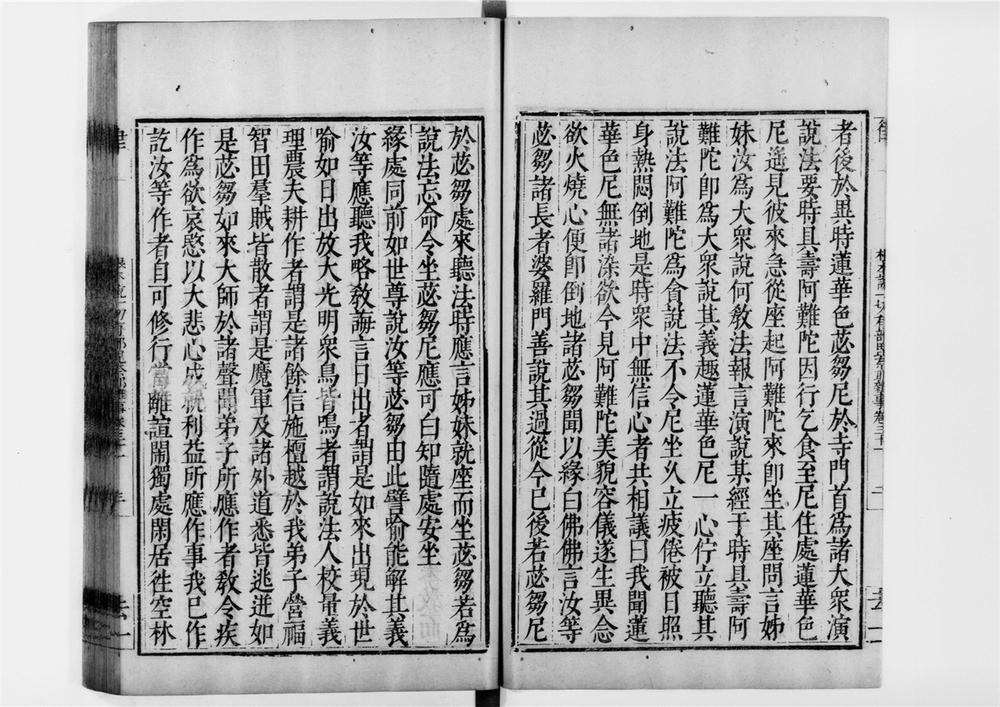 者後於異時蓮華色苾芻尼於寺門首爲諸大衆演
說法要時具壽阿難陀因行乞食至尼住處蓮華色
尼遙見彼來急從座起阿難陀來即坐其座問言姊
妹汝爲大衆說何教法報言演說某經于時具壽阿
難陀即爲大衆說其義趣蓮華色尼一心佇立聽其
說法阿難陀爲會說法不令尼坐久立疲倦被日照
身熱悶倒地是時衆中無信心者共相議曰我聞蓮
華色尼無諸染欲今見阿難陀美貌容儀遂生異念
欲火燒心便即倒地諸苾芻聞以緣白佛佛言汝等
苾芻諸長者婆羅門善說其過從今已後若苾芻尼
於苾芻處來聽法時應言姊妹就座而坐苾芻若爲
說法忘命令坐苾芻尼應可白知隨處安坐
緣處同前如世尊說汝等苾芻由此譬喻能解其義
汝等應聽我略教誨言日出者謂是如來出現於世
喻如日出放大光明衆鳥皆鳴者謂說法人校量義
理農夫耕作者謂是諸餘信施檀越於我弟子營福
智田羣賊皆散者謂是魔軍及諸外道悉皆逃迸如
是苾芻如來大師於諸聲聞弟子所應作者教令疾
作爲欲哀愍以大悲心成就利益所應作事我已作
訖汝等作者自可修行當離諠鬧獨處閑居徃空林